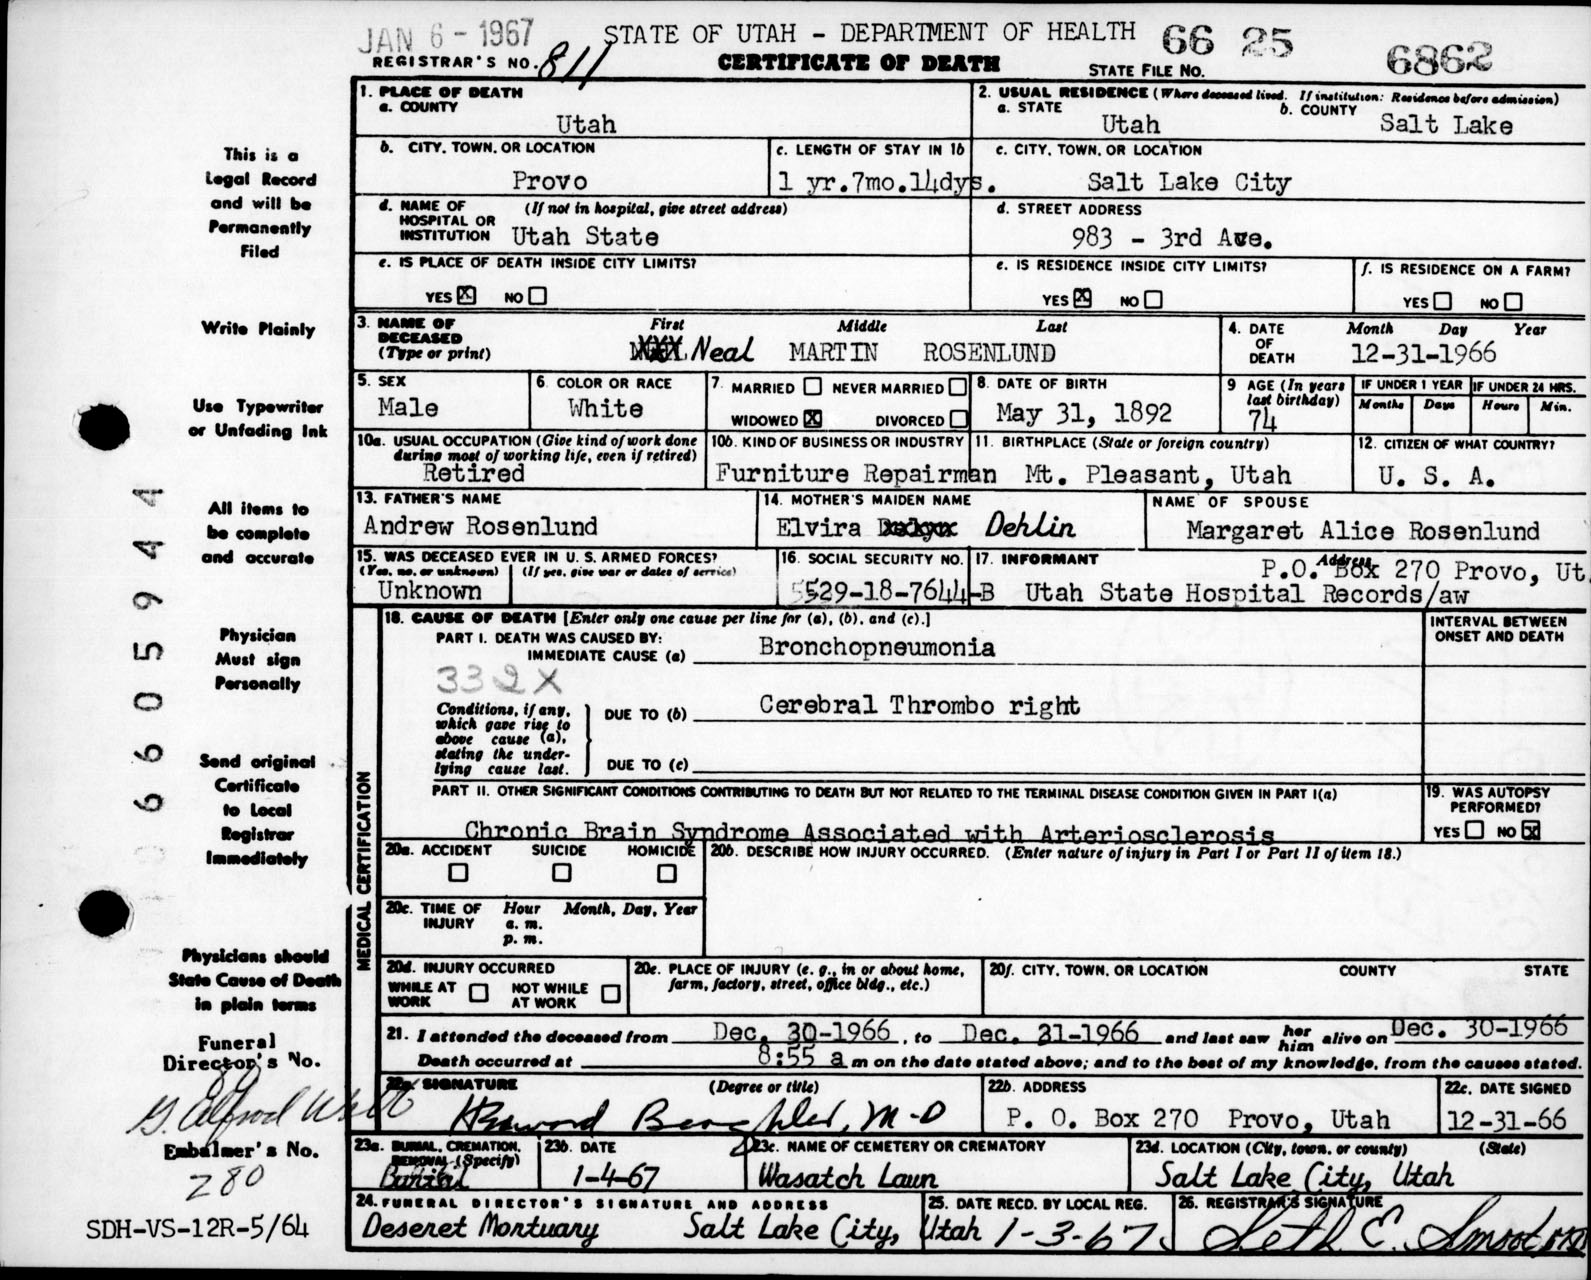 JAN 6 - 1967
STATE OF UTAH - DEPARTMENT OF HEALTH 66 25 6862
REGISTRAR'S NO. 811 CERTIFICATE OF DEATH STATE FILE NO.
1. PLACE OF DEATH
a. COUNTY
Utah
2. USUAL RESIDENCE (Where deceased lived. If institution: Residence before admission)
a. STATE
Utah
b. COUNTY
Salt Lake
b. CITY, TOWN, OR LOCATION
Provo
c. LENGTH OF STAY IN 1b
1 yr.7mo.14dys.
c. CITY, TOWN, OR LOCATION
Salt Lake City
d. NAME OF HOSPITAL OR INSTITUTION
(If not in hospital, give street address)
Utah State
d. STREET ADDRESS
983 - 3rd Ave.
e. IS PLACE OF DEATH INSIDE CITY LIMITS?
YES X NO
e. IS RESIDENCE INSIDE CITY LIMITS?
YES X NO
f. IS RESIDENCE ON A FARM?
YES NO
3. NAME OF DECEASED
(Type or print)
First Middle Last
Neal MARTIN ROSENLUND
4. DATE OF DEATH
Month Day Year
12-31-1966
5. SEX
Male
6. COLOR OR RACE
White
7. MARRIED NEVER MARRIED
WIDOWED X DIVORCED
8. DATE OF BIRTH
May 31, 1892
9 AGE (In years last birthday)
74
IF UNDER 1 YEAR
Months Days
IF UNDER 24 HRS.
Hours Min.
10a. USUAL OCCUPATION (Give kind of work done during most of working life, even if retired)
Retired
10b. KIND OF BUSINESS OR INDUSTRY
Furniture Repairman
11. BIRTHPLACE (State or foreign country)
Mt. Pleasant, Utah
12. CITIZEN OF WHAT COUNTRY?
U. S. A.
13. FATHER'S NAME
Andrew Rosenlund
14. MOTHER'S MAIDEN NAME
Elvira Dehlin
NAME OF SPOUSE
Margaret Alice Rosenlund
15. WAS DECEASED EVER IN U. S. ARMED FORCES?
(Yes, no, or unknown) (If yes, give war or dates of service)
Unknown
16. SOCIAL SECURITY NO.
529-18-7644-B
17. INFORMANT
Address
P.O. Box 270 Provo, Ut.
Utah State Hospital Records/aw
MEDICAL CERTIFICATION
18. CAUSE OF DEATH [Enter only one cause per line for (a), (b), and (c).]
INTERVAL BETWEEN ONSET AND DEATH
PART I. DEATH WAS CAUSED BY:
IMMEDIATE CAUSE (a) Bronchopneumonia
332X
Conditions, if any, which gave rise to above cause (a), stating the underlying cause last.
DUE TO (b) Cerebral Thrombo right
DUE TO (c)
PART II. OTHER SIGNIFICANT CONDITIONS CONTRIBUTING TO DEATH BUT NOT RELATED TO THE TERMINAL DISEASE CONDITION GIVEN IN PART I(a)
Chronic Brain Syndrome Associated with Arteriosclerosis
19. WAS AUTOPSY PERFORMED?
YES NO X
20a. ACCIDENT SUICIDE HOMICIDE
20b. DESCRIBE HOW INJURY OCCURRED. (Enter nature of injury in Part I or Part II of item 18.)
20c. TIME OF INJURY
Hour Month, Day, Year
a. m.
p. m.
20d. INJURY OCCURRED
WHILE AT WORK NOT WHILE AT WORK
20e. PLACE OF INJURY (e. g., in or about home, farm, factory, street, office bldg., etc.)
20f. CITY, TOWN, OR LOCATION COUNTY STATE
21. I attended the deceased from Dec. 30-1966, to Dec. 31-1966 and last saw her him alive on Dec. 30-1966
Death occurred at 8:55 a m on the date stated above; and to the best of my knowledge, from the causes stated.
22a. SIGNATURE (Degree or title)
M-D
22b. ADDRESS
P. O. Box 270 Provo, Utah
22c. DATE SIGNED
12-31-66
23a. BURIAL, CREMATION, REMOVAL (Specify)
Burial
23b. DATE
1-4-67
23c. NAME OF CEMETERY OR CREMATORY
Wasatch Lawn
23d. LOCATION (City, town, or county) (State)
Salt Lake City, Utah
24. FUNERAL DIRECTOR'S SIGNATURE AND ADDRESS
Deseret Mortuary Salt Lake City, Utah
25. DATE RECD. BY LOCAL REG.
1-3-67
26. REGISTRAR'S SIGNATURE
Seth E. Smoot
This is a
Legal Record
and will be
Permanently
Filed
Write Plainly
Use Typewriter
or Unfading Ink
All items to
be complete
and accurate
Physician
Must sign
Personally
Send original
Certificate
to Local
Registrar
Immediately
Physicians should
State Cause of Death
in plain terms
Funeral
Director's No.
Embalmer's No.
280
SDH-VS-12R-5/64
6605944